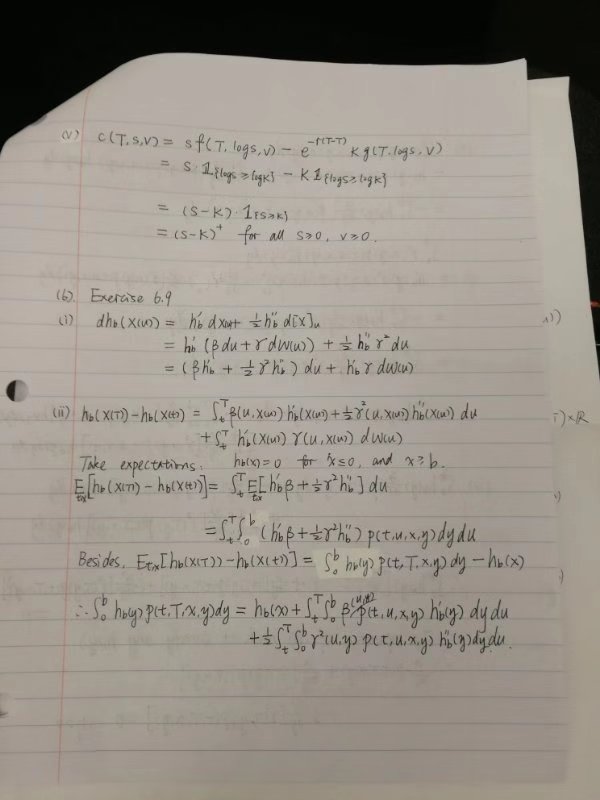 (v) c(T,s,v) = s f(T, log s, v) − e^{-r(T-T)} K g(T, log s, v)
= s·𝟙_{log s ≥ log K} − K 𝟙_{log s ≥ log K}
= (s−K)·𝟙_{s≥K}
= (s−K)⁺ for all s≥0, v≥0.
(6) Exercise 6.9
(i) dh_b(X(u)) = h_b' dX(u) + ½ h_b'' d[X]_u
= h_b' (β du + γ dW(u)) + ½ h_b'' γ² du
= (β h_b' + ½ γ² h_b'') du + h_b' γ dW(u)
(ii) h_b(X(T)) − h_b(X(t)) = ∫_t^T β(u, X(u)) h_b'(X(u)) + ½ γ²(u, X(u)) h_b''(X(u)) du
+ ∫_t^T h_b'(X(u)) γ(u, X(u)) dW(u)
Take expectations. h_b(x) = 0 for x ≤ 0, and x ≥ b.
E_{t,x}[h_b(X(T)) − h_b(X(t))] = ∫_t^T E_{t,x}[h_b' β + ½ γ² h_b''] du
= ∫_t^T ∫_0^b (h_b' β + ½ γ² h_b'') p(t,u,x,y) dy du
Besides, E_{t,x}[h_b(X(T)) − h_b(X(t))] = ∫_0^b h_b(y) p(t,T,x,y) dy − h_b(x)
∴ ∫_0^b h_b(y) p(t,T,x,y) dy = h_b(x) + ∫_t^T ∫_0^b β(u,y) p(t,u,x,y) h_b'(y) dy du
+ ½ ∫_t^T ∫_0^b γ²(u,y) p(t,u,x,y) h_b''(y) dy du.
) × ℝ